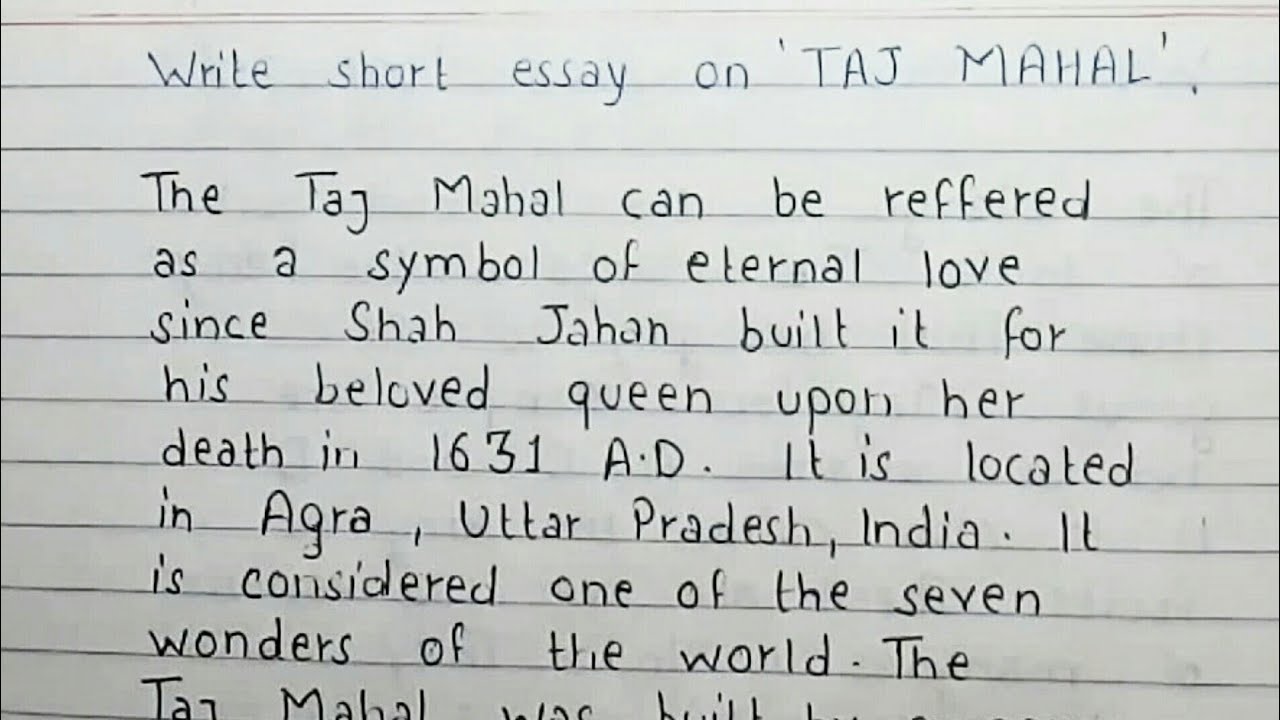 Write short essay on 'TAJ MAHAL'.
The Taj Mahal can be reffered
as a symbol of eternal love
since Shah Jahan built it for
his beloved queen upon her
death in 1631 A.D. It is located
in Agra, Uttar Pradesh, India. It
is considered one of the seven
wonders of the world. The
Taj Mahal was built by